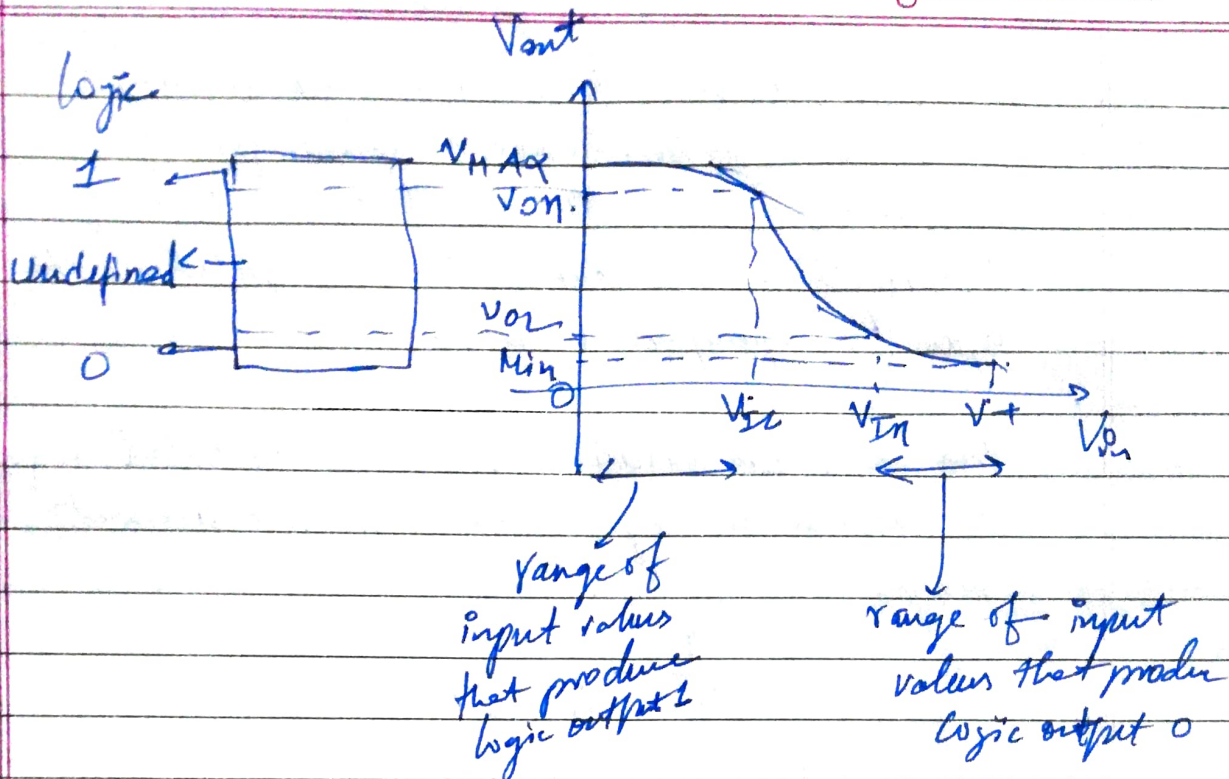 Vout
Logic
1
VMAX
VOH
undefined
VOL
0
Min
0
VIL
VIH
V+
Vin
range of
input values
that produce
logic output 1
range of input
values that produce
logic output 0